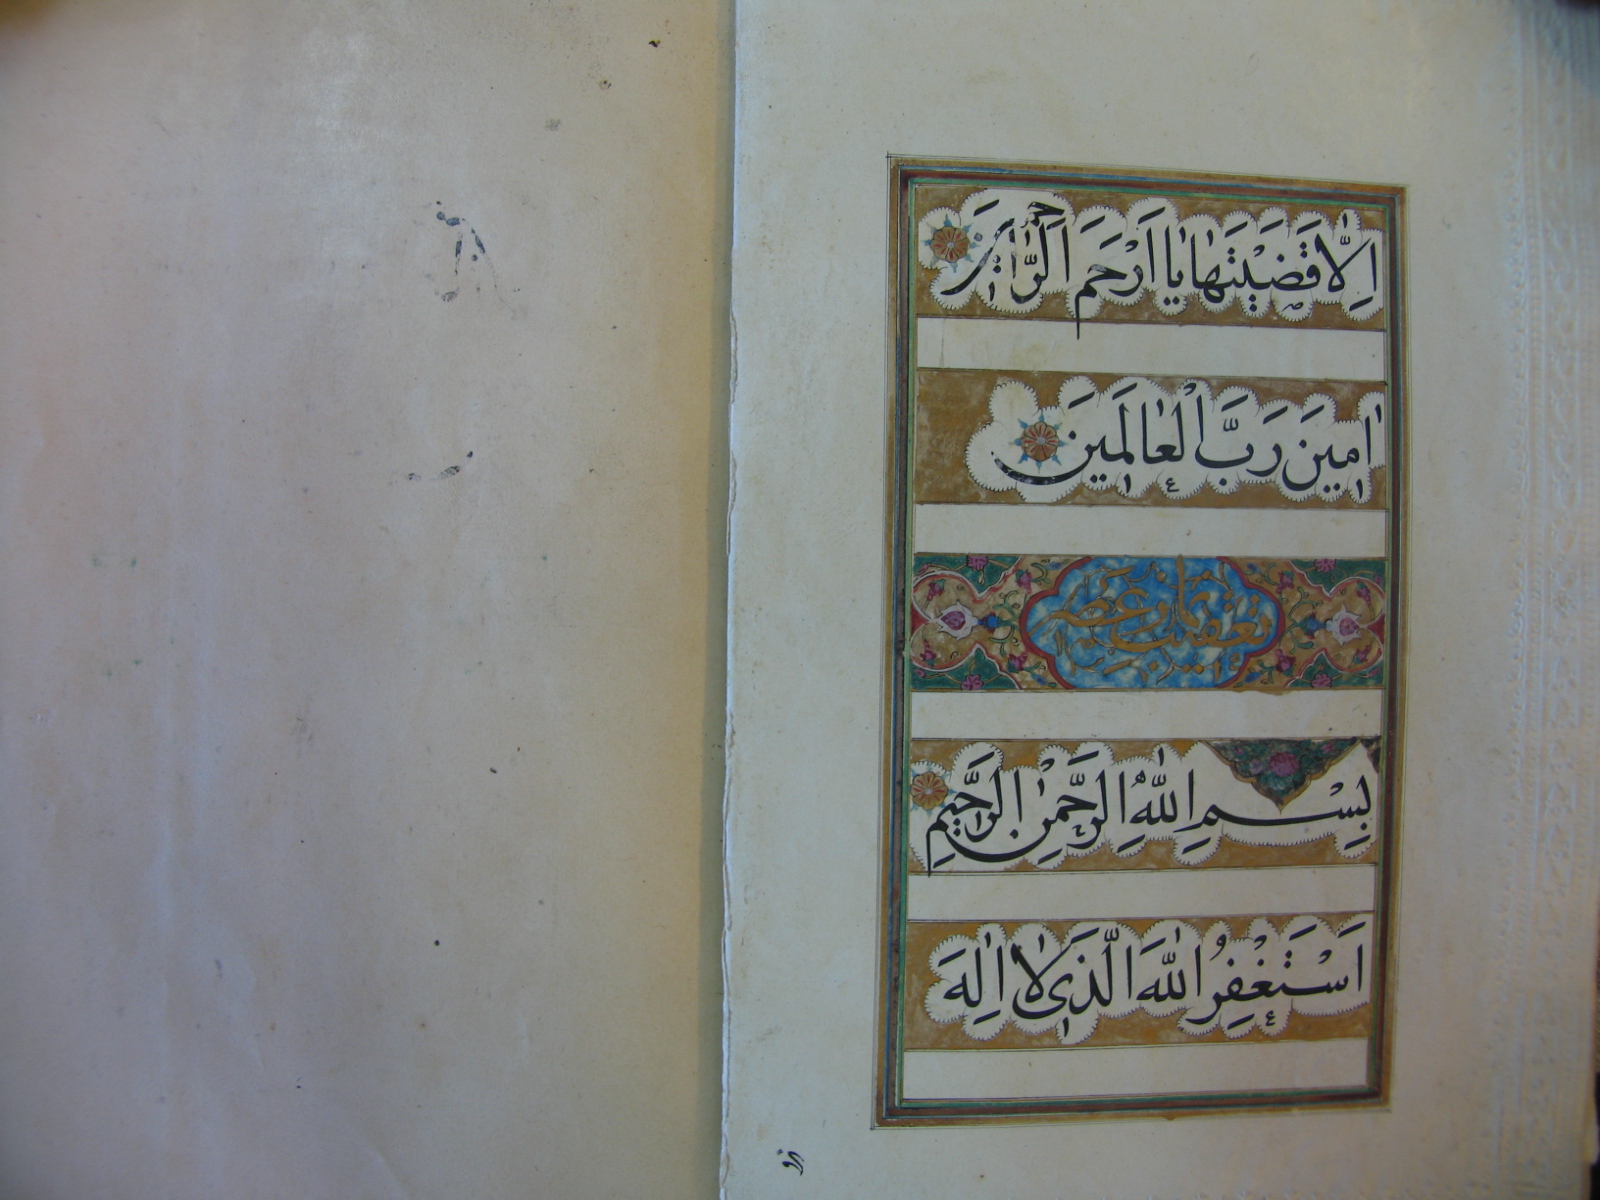 اِلّا قَضَيْتَها يا اَرْحَمَ الرّٰاحِمينَ
اٰمينَ رَبَّ الْعٰالَمينَ
تعقيب نماز عصر
بِسْمِ اللّٰهِ الرَّحْمٰنِ الرَّحيمِ
اَسْتَغْفِرُ اللّٰهَ الَّذى لٰا اِلٰهَ